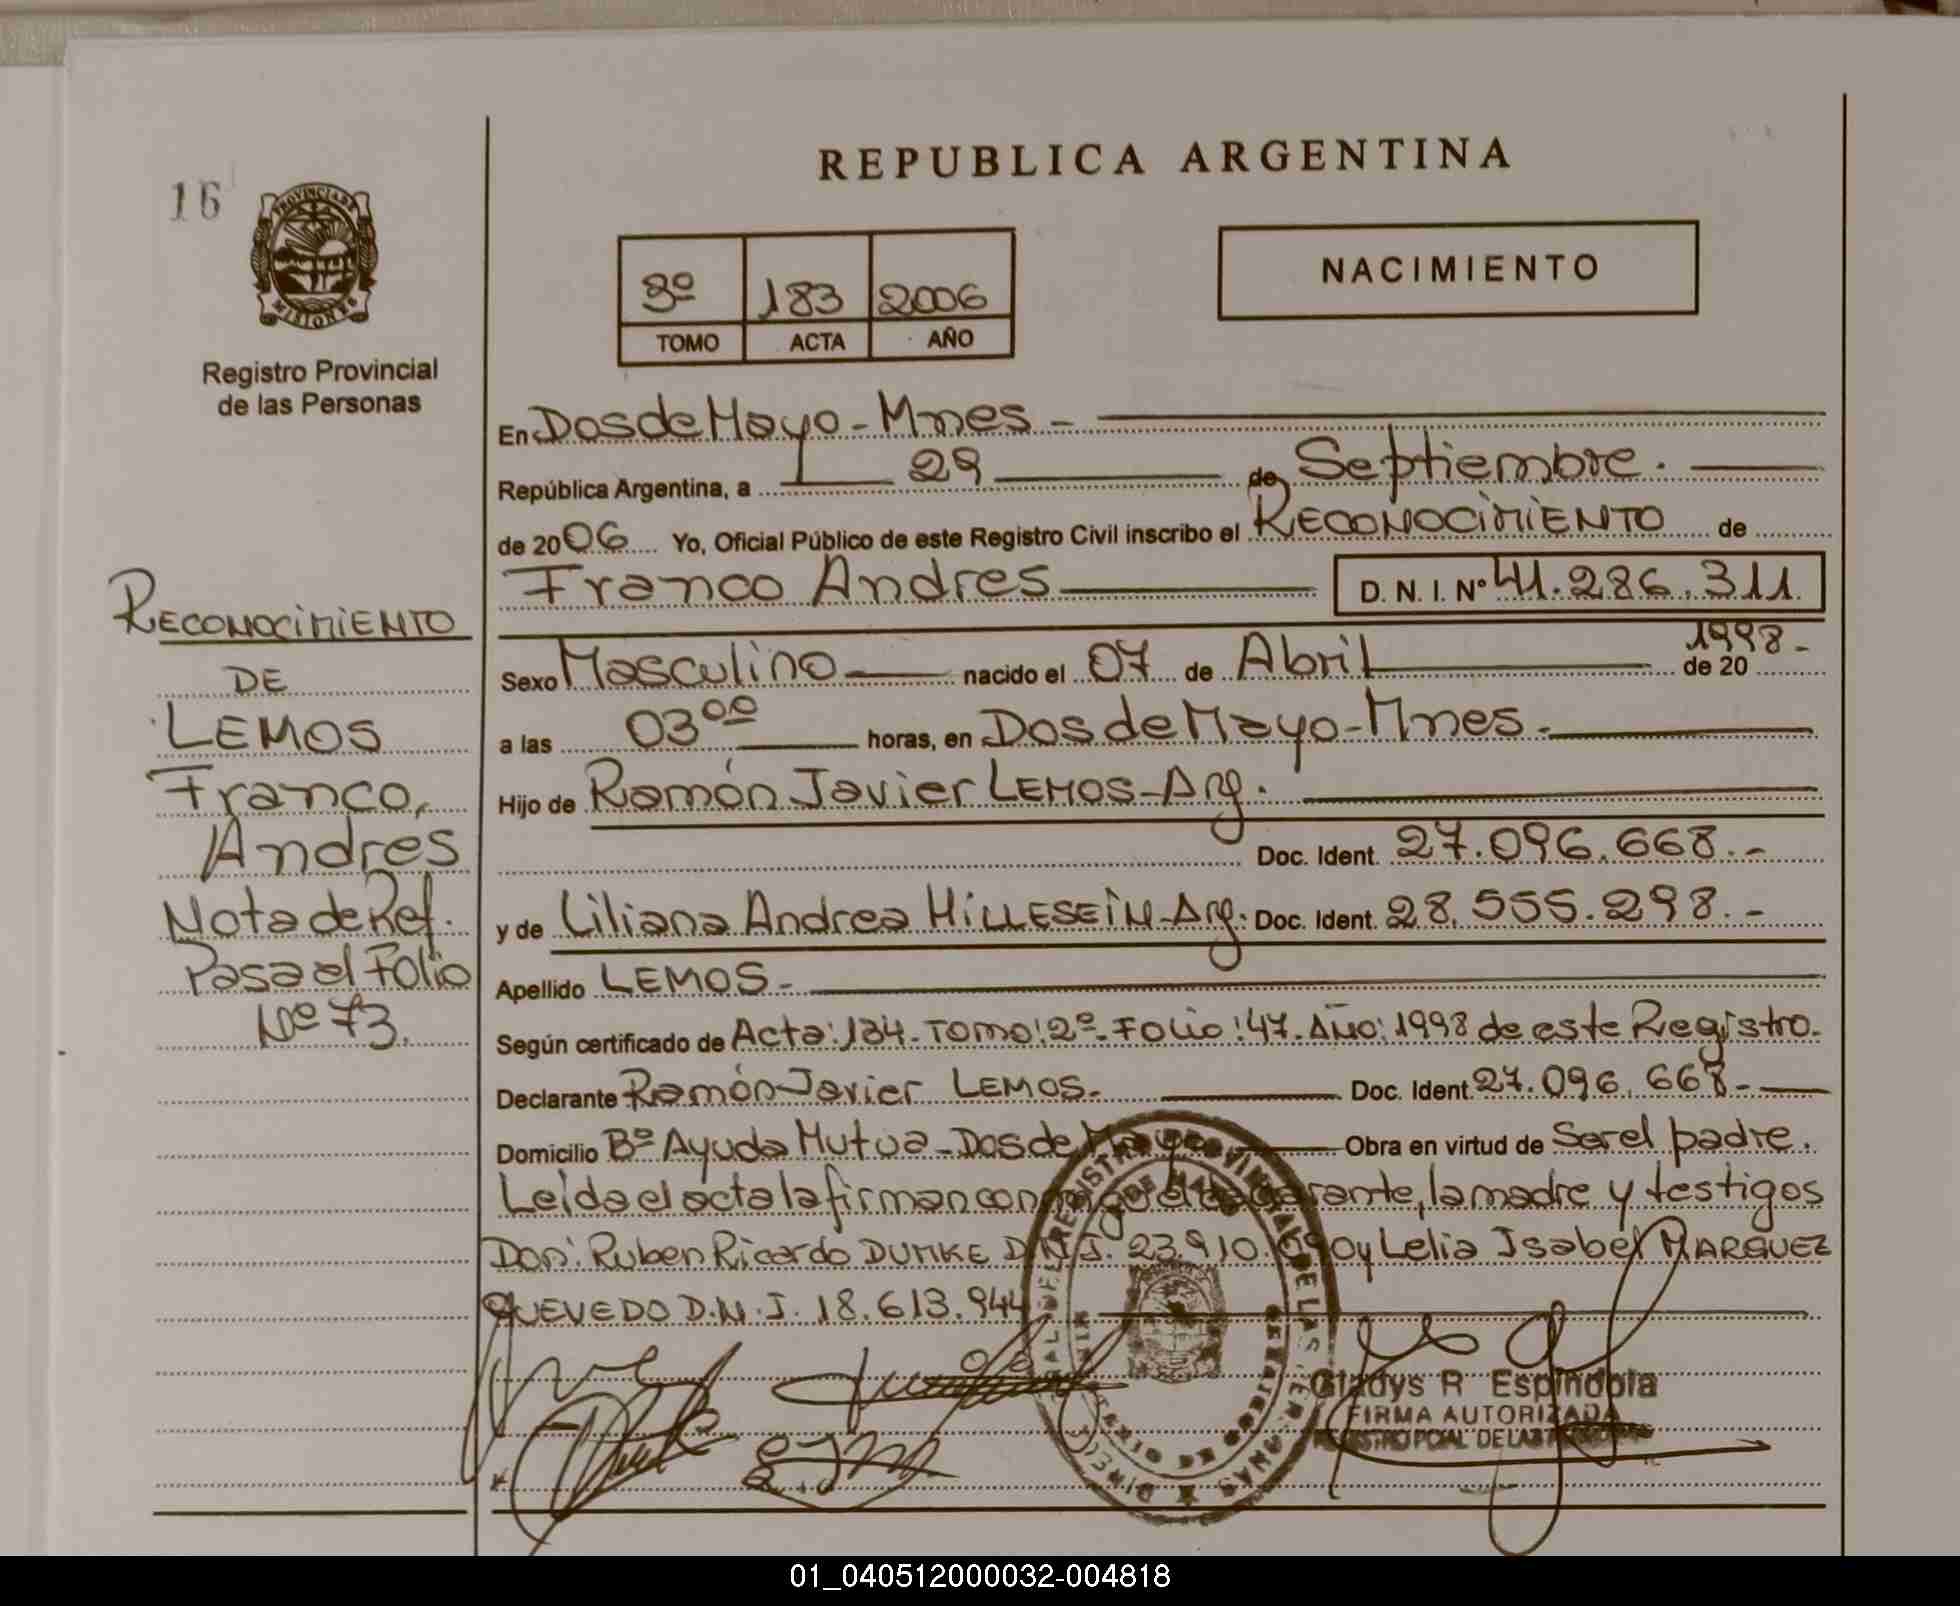 16
PROVINCIA DE
MISIONES
Registro Provincial
de las Personas
REPUBLICA ARGENTINA
3º 183 2006
TOMO ACTA AÑO
NACIMIENTO
En Dos de Mayo - Mnes -
República Argentina, a 29 de Septiembre.
de 2006 Yo, Oficial Público de este Registro Civil inscribo el RECONOCIMIENTO de
Franco Andres D. N. I. Nº 41.286.311.
Sexo Masculino nacido el 07 de Abril de 20 1998-
a las 03ºº horas, en Dos de Mayo - Mnes.
Hijo de Ramón Javier LEMOS - Arg.
Doc. Ident. 27.096.668.-
y de Liliana Andrea HILLESEIN - Arg. Doc. Ident. 28.555.298.-
Apellido LEMOS.-
Según certificado de Acta: 134. Tomo: 2º. Folio: 47. Año: 1998 de este Registro.
Declarante Ramón Javier LEMOS. Doc. Ident. 27.096.668-
Domicilio Bº Ayuda Mutua - Dos de Mayo Obra en virtud de Ser el padre.
Leída el acta la firman conmigo el declarante, la madre y testigos
Don: Ruben Ricardo DUMKE D.N.I. 23.910.690 y Lelia Isabel MARQUEZ
QUEVEDO D.N.I. 18.613.944
Gladys R Espindola
FIRMA AUTORIZADA
REGISTRO PCIAL DE LAS PERSONAS
RECONOCIMIENTO
DE
LEMOS
Franco,
Andres
Nota de Ref.
Pasa el Folio
Nº 73.
01_040512000032-004818